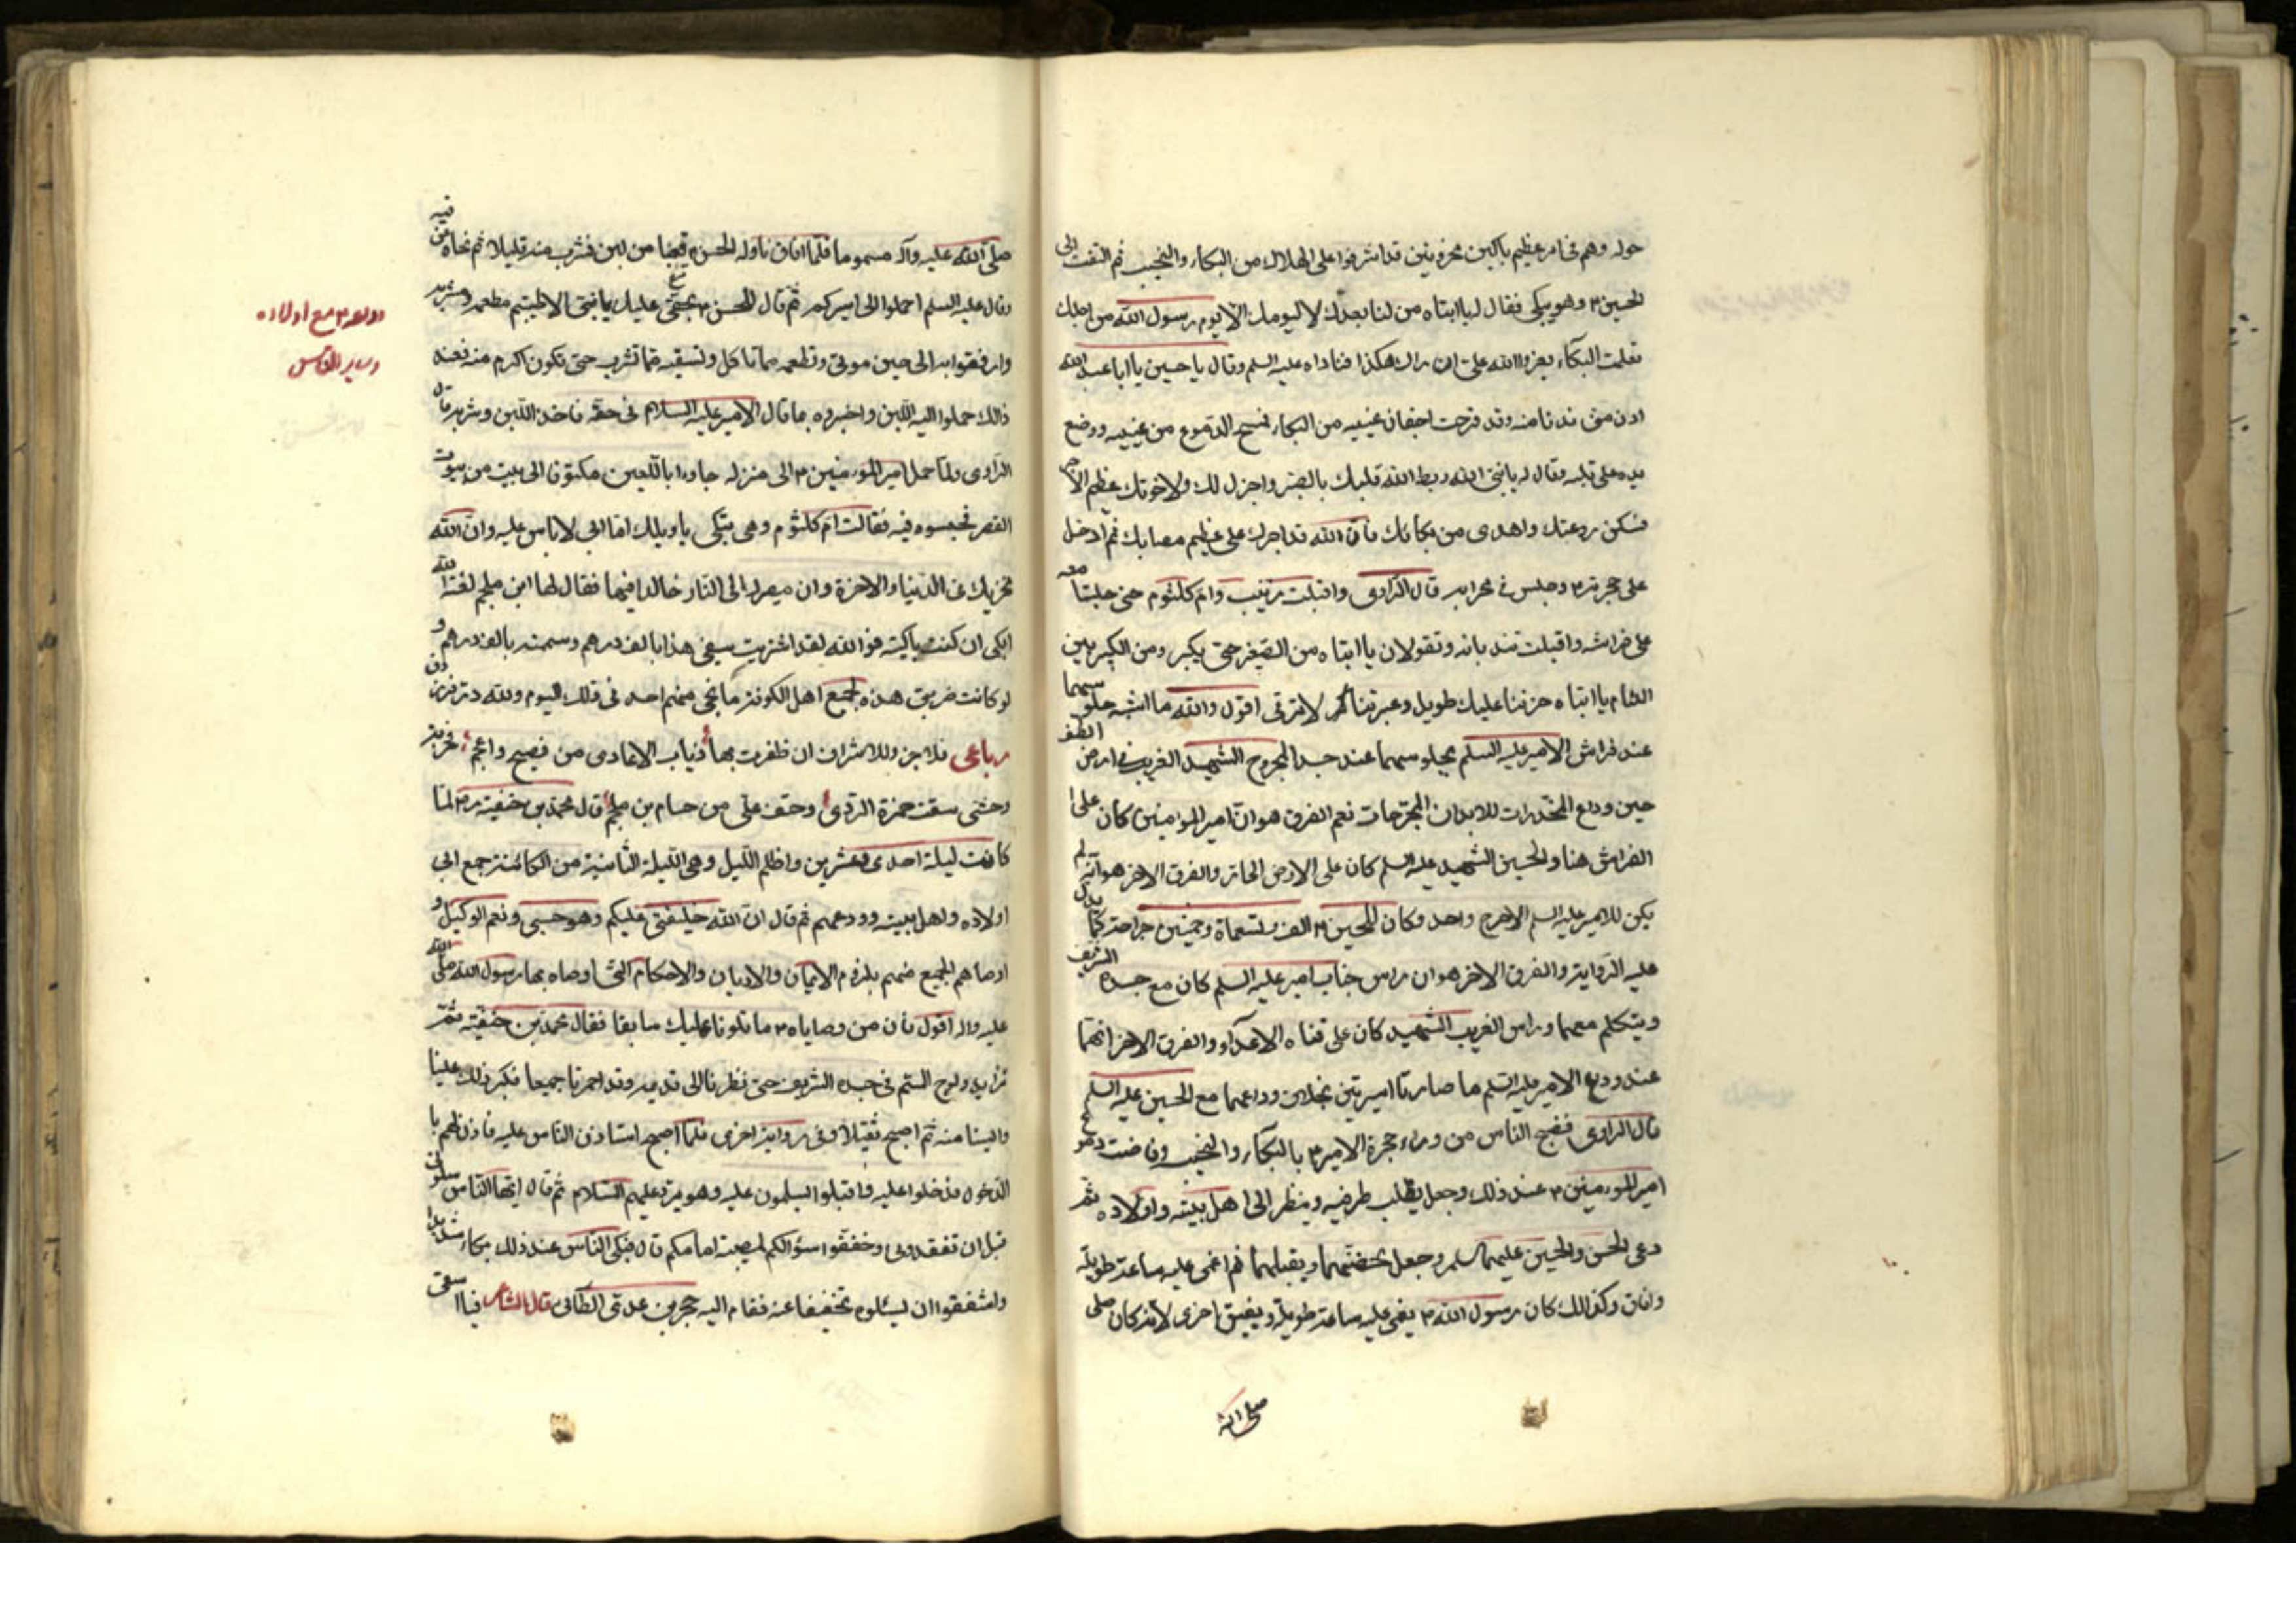 حوله وهم فى امر عظيم باكين محزونين قد اشرفوا على الهلاك من البكاء والنحيب ثم التفت الى
الحسين ٣ وهو يبكى فقال له يا ابتاه من لنا بعدك لا ليومك الا يوم رسول الله من اجلك
تعلمت البكاء يعز والله على ان اراك هكذا فناداه عليه السلم وقال يا حسين يا ابا عبد الله
ادن منى فدنا منه وقد قرحت اجفان عينيه من البكاء فمسح الدموع من عينيه ووضع
يده على قلبه وقال له يا بنى ربط الله قلبك بالصبر واجزل لك ولاخوتك عظيم الاجر
فسكن روعتك واهدى من بكائك فان الله قد اجرك على عظيم مصابك ثم ادخل
على حجرته ٣ وجلس فى محرابه قال الراوى واقبلت زينب وام كلثوم حتى جلستا معه
على فراشه واقبلت تندبانه وتقولان يا ابتاه من للصغير حتى يكبر ومن للكبير بين
الملا يا ابتاه حزننا عليك طويل وعبرتنا لا ترقى اقول والله ما اشبه جلوسهما
عند فراش الامير عليه السلم بجلوسهما عند جسد المجروح الشهيد الغريب فى ارض الطف
حين وداع المخدرات للابدان المجرحات نعم الفرق هو ان امير المؤمنين كان على
الفراش هنا والحسين الشهيد عليه السلم كان على الارض الحارة والفرق الاخر هو انه لم
يكن للامير عليه السلم الا جرح واحد وكان للحسين ٣ الف وتسعمأة وخمسين جراحة كما يدل
عليه الرواية والفرق الاخر هو ان راس جناب امير عليه السلم كان مع جسده الشريف
ويتكلم معهما وراس الغريب الشهيد كان على قناه الاعداء والفرق الاخر انهما
عند وداع الامير عليه السلم ما صارتا اسيرتين بخلاف وداعهما مع الحسين عليه السلم
قال الراوى فضج الناس من وراء حجرة الامير ٣ بالبكاء والنحيب وفاضت دموع
امير المؤمنين ٣ عند ذلك وجعل يقلب طرفه وينظر الى اهل بيته واولاده ثم
دعى الحسن والحسين عليهما السلم وجعل يحضنهما ويقبلهما ثم اغمى عليه ساعة طويلة
وافاق وكذلك كان رسول الله ٣ يغمى عليه ساعة طويلة ويفيق اخرى لانه كان صلى
صلى الله
صلى الله عليه وآله مسموما فلما افاق ناوله الحسن ع قعبا من لبن فشرب منه قليلا ثم نحاه من فيه
وقال عليه السلم احملوا الى اسيركم ثم قال للحسن ٣ بحقى عليك يا بنى الا طيبتم مطعمه ومشربه
وارفقوا به الى حين موتى وتطعمه مما تاكل وتسقيه مما تشرب حتى تكون اكرم منه فعند
ذلك حملوا اليه اللبن واخبروه بما قال الامير عليه السلام فى حقه فاخذ اللبن وشربه قال
الراوى ولما حمل امير المؤمنين ٣ الى منزله جاءوا باللعين مكتوفا الى بيت من بيوت
القصر فحبسوه فيه فقالت ام كلثوم وهى تبكى يا ويلك اما ابى لا باس عليه وان الله
مخزيك فى الدنيا والاخرة وان مصيرك الى النار خالدا فيها فقال لها ابن ملجم لعنه الله
ابكى ان كنت باكية فوالله لقد اشتريت سيفى هذا بالف درهم وسمته بالف درهم و
لو كانت ضربتى هذه لجميع اهل الكوفة ما نجى منهم احد فى ذلك اليوم ولله در فرزدق
رباعى فلا جزو للاشراف ان ظفرت بها ذئاب الاعادى من فصيح واعجم فحربة
وحشى سقت حمزة الردى وحتف على من حسام بن ملجم قال محمد بن حنفية ره لما
كانت ليلة احدى وعشرين واظلم الليل وهى الليلة الثانية من الكائنة جمع ابى
اولاده واهل بيته وودعهم ثم قال ان الله خليفتى عليكم وهو حسبى ونعم الوكيل و
اوصاهم الجميع منهم بلزوم الايمان والاديان والاحكام التى اوصاه بها رسول الله صلى الله
عليه واله اقول فان من وصاياه ٣ ما تلونا عليك سابقا فقال محمد بن حنفية ثم
تزايد ولوج السم فى جسده الشريف حتى نظرنا الى قدميه وقد احمرتا جميعا فكبر ذلك علينا
وايسنا منه ثم اصبح ثقيلا وفى رواية اخرى فلما اصبح استاذن الناس عليه فاذن لهم با
الدخول فدخلوا عليه واقبلوا يسلمون عليه وهو يرد عليهم السلام ثم قال ايها الناس سلونى
قبل ان تفقدونى وخففوا سؤالكم لمصيبة امامكم قال فبكى الناس عند ذلك بكاء شديدا
واشفقوا ان يسئلوه تخفيفا عنه فقام اليه حجر بن عدى الطائى قال الشاعر فيا اسفى
وداعه ٣ مع اولاده
وساير الناس